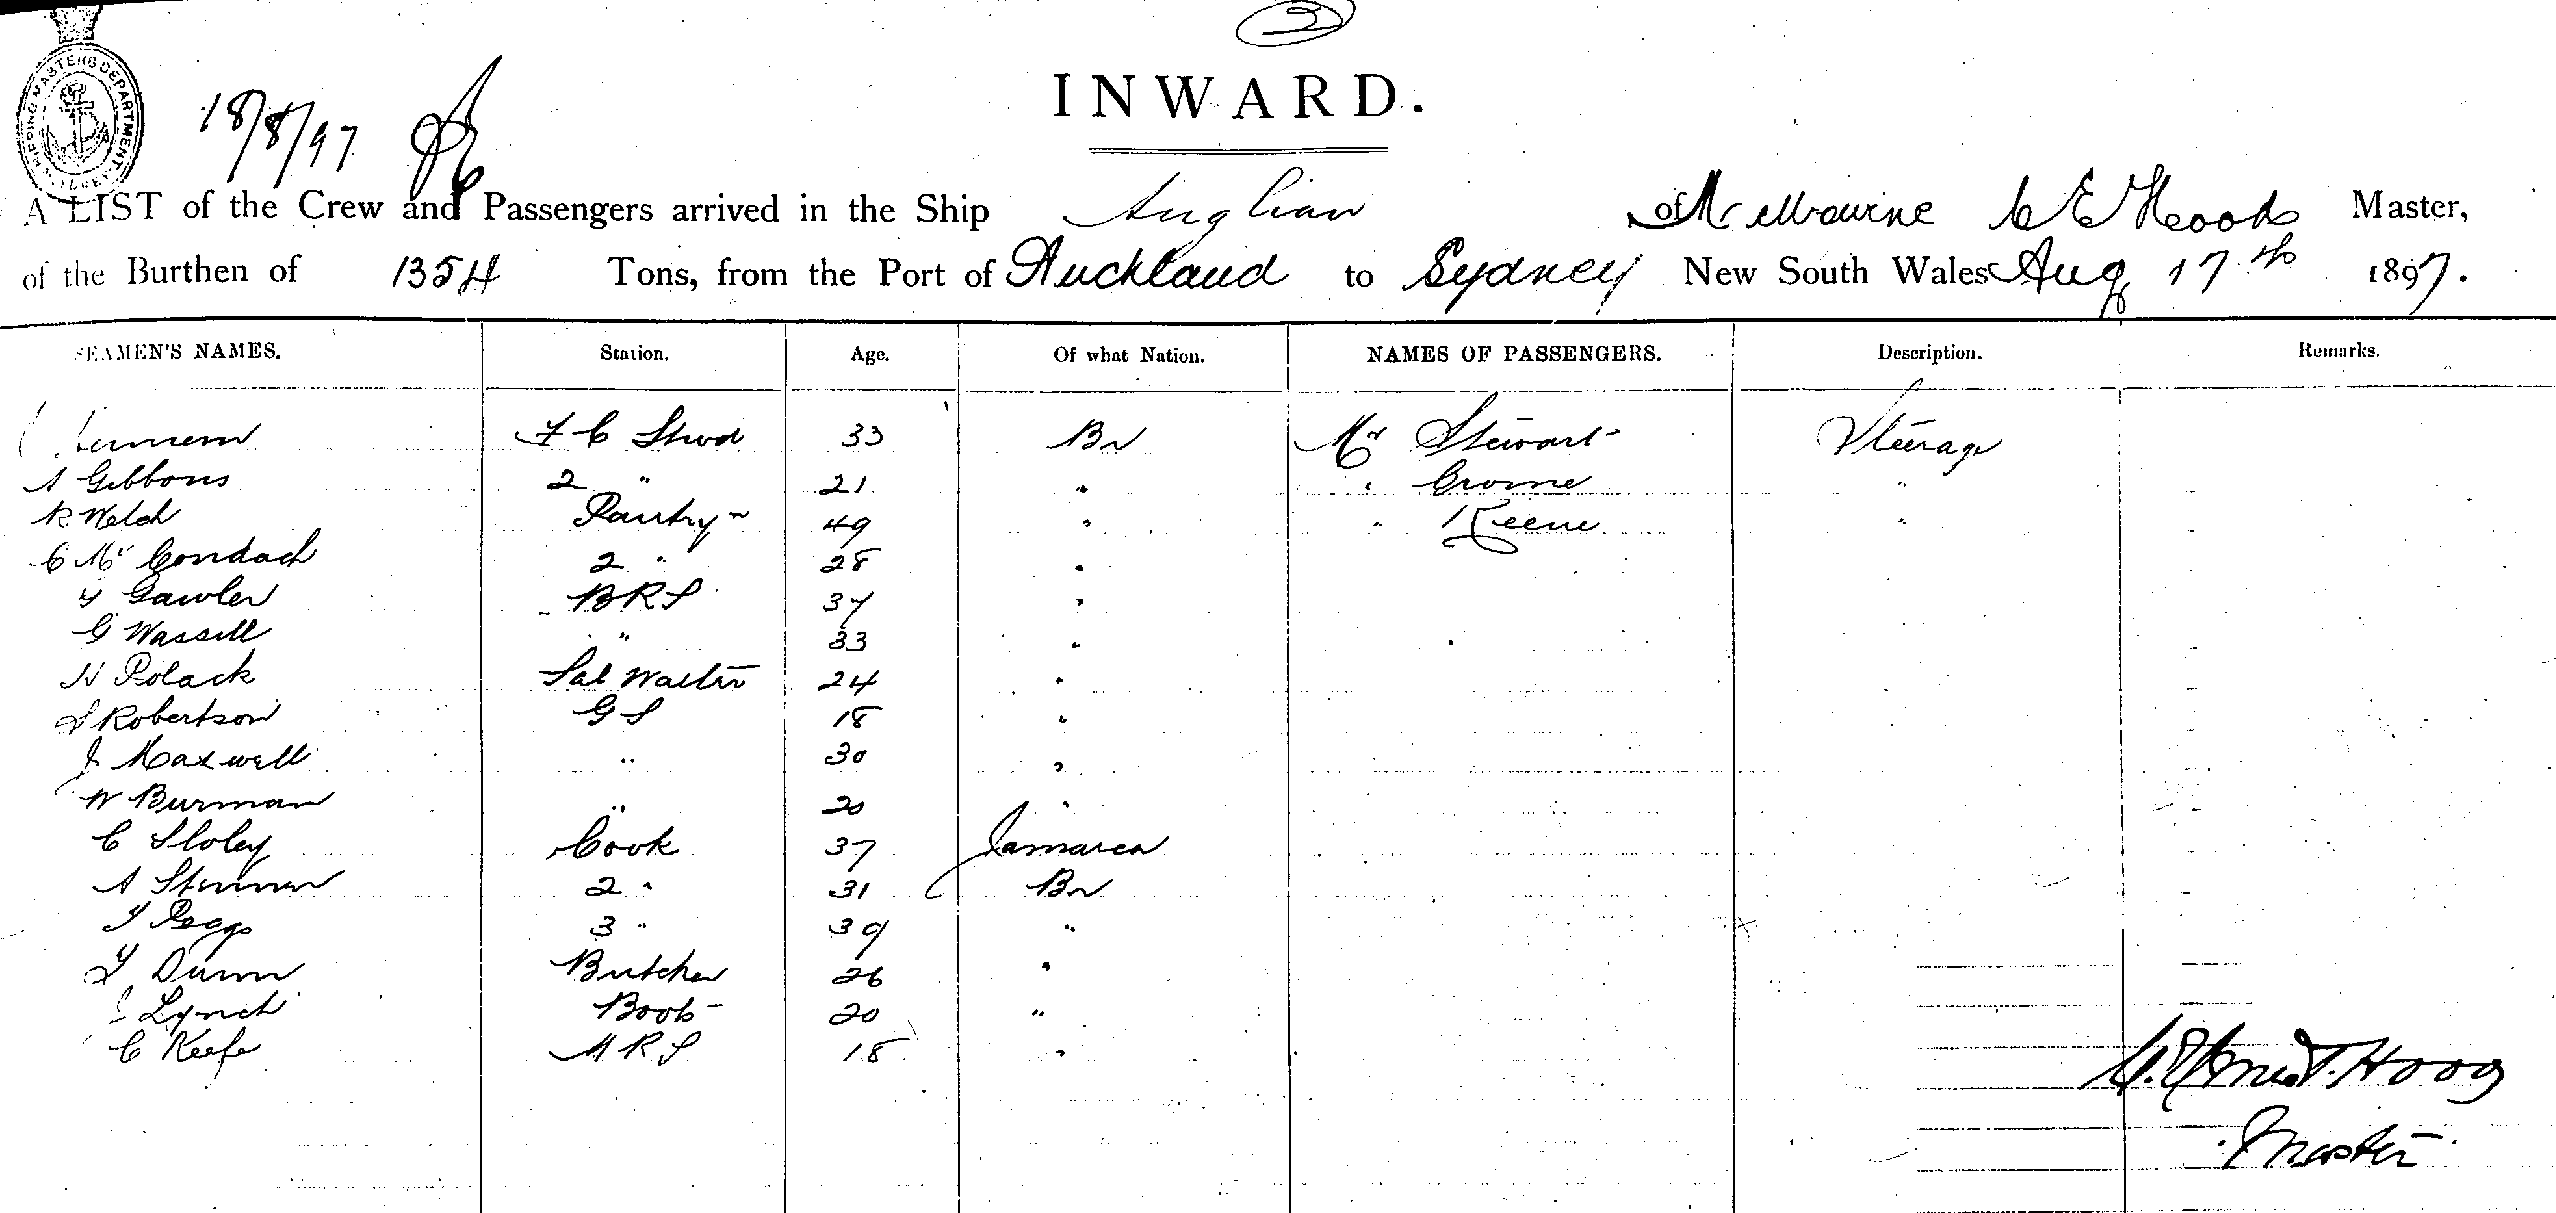 3
INWARD.
SHIPPING MASTERS DEPARTMENT
18/8/97
A LIST of the Crew and Passengers arrived in the Ship Anglian of Melbourne Master,
of the Burthen of 1354 Tons, from the Port of Auckland to Sydney New South Wales Aug 17th 1897.
SEAMEN'S NAMES. Station. Age. Of what Nation. NAMES OF PASSENGERS. Description. Remarks.
F C Stwd 33 Br Mr Stewart Steerage
A Gibbons 2 " 21 " " " "
R Welch Pantry 49 " " Keene "
C Mc Condach 2 " 28 "
Gawler BRS 37 "
G Wassell " 33 "
H Polack Sal Waiter 24 "
S Robertson G S 18 "
J Maxwell " 30 "
W Burman " 20 "
C Sloley Cook 37 Jamaica
A 2 " 31 Br
Peggs 3 " 39 "
Dunn Butcher 26 "
Lynch Boots 20 "
C Keefe M R S 18 "
Master